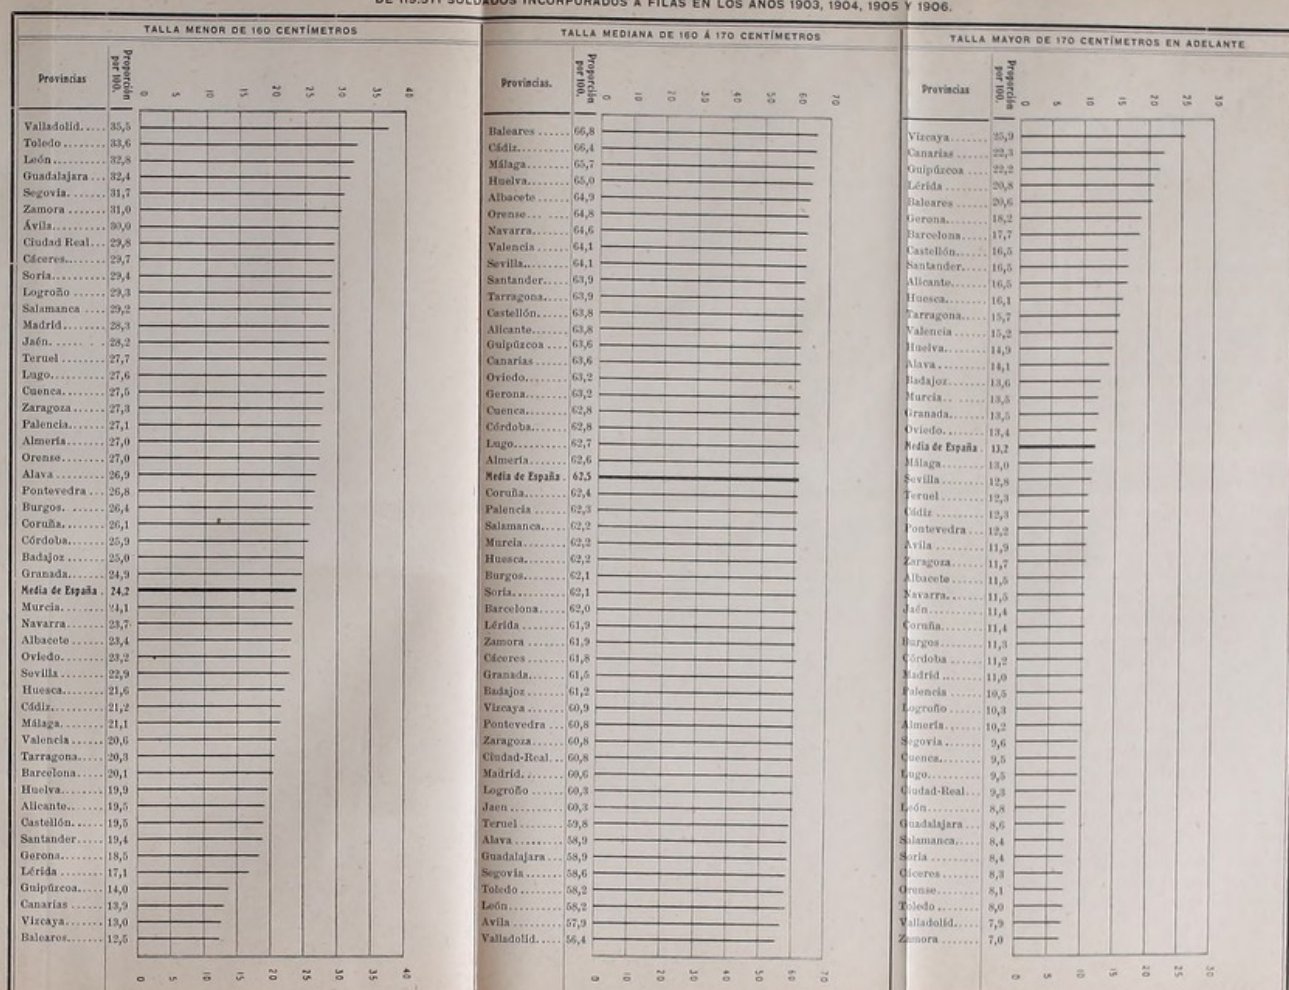 DE 119.571 SOLDADOS INCORPORADOS A FILAS EN LOS AÑOS 1903, 1904, 1905 Y 1906.
TALLA MENOR DE 160 CENTÍMETROS
Provincias Proporción por 100. 0 5 10 15 20 25 30 35 40
Valladolid..... 35,5
Toledo ........ 33,6
León........... 32,8
Guadalajara ... 32,4
Segovia........ 31,7
Zamora ........ 31,0
Ávila.......... 30,0
Ciudad Real... 29,8
Cáceres........ 29,7
Soria.......... 29,4
Logroño ...... 29,3
Salamanca .... 29,2
Madrid........ 28,3
Jaén.......... 28,2
Teruel ........ 27,7
Lugo.......... 27,6
Cuenca........ 27,5
Zaragoza ..... 27,3
Palencia....... 27,1
Almería....... 27,0
Orense........ 27,0
Alava ......... 26,9
Pontevedra ... 26,8
Burgos........ 26,4
Coruña........ 26,1
Córdoba....... 25,9
Badajoz ....... 25,0
Granada....... 24,9
Media de España . 24,2
Murcia........ 24,1
Navarra....... 23,7
Albacete ...... 23,4
Oviedo........ 23,2
Sevilla ........ 22,9
Huesca........ 21,6
Cádiz.......... 21,2
Málaga........ 21,1
Valencia ...... 20,6
Tarragona..... 20,3
Barcelona..... 20,1
Huelva........ 19,9
Alicante....... 19,5
Castellón...... 19,5
Santander..... 19,4
Gerona........ 18,5
Lérida ........ 17,1
Guipúzcoa..... 14,0
Canarias ...... 13,9
Vizcaya........ 13,0
Baleares....... 12,5
0 5 10 15 20 25 30 35 40
TALLA MEDIANA DE 160 Á 170 CENTÍMETROS
Provincias. Proporción por 100. 0 10 20 30 40 50 60 70
Baleares ...... 66,8
Cádiz.......... 66,4
Málaga........ 65,7
Huelva........ 65,0
Albacete ...... 64,9
Orense........ 64,8
Navarra....... 64,6
Valencia ...... 64,1
Sevilla........ 64,1
Santander..... 63,9
Tarragona..... 63,9
Castellón...... 63,8
Alicante....... 63,8
Guipúzcoa .... 63,6
Canarias ...... 63,6
Oviedo........ 63,2
Gerona........ 63,2
Cuenca........ 62,8
Córdoba....... 62,8
Lugo.......... 62,7
Almería....... 62,6
Media de España . 62,5
Coruña........ 62,4
Palencia ...... 62,3
Salamanca..... 62,2
Murcia........ 62,2
Huesca........ 62,2
Burgos........ 62,1
Soria.......... 62,1
Barcelona ..... 62,0
Lérida ........ 61,9
Zamora ....... 61,9
Cáceres ....... 61,8
Granada....... 61,5
Badajoz ....... 61,2
Vizcaya ....... 60,9
Pontevedra ... 60,8
Zaragoza...... 60,8
Ciudad-Real... 60,8
Madrid........ 60,6
Logroño ...... 60,3
Jaen .......... 60,3
Teruel ........ 59,8
Alava ......... 58,9
Guadalajara ... 58,9
Segovia ....... 58,6
Toledo ........ 58,2
León.......... 58,2
Avila ......... 57,9
Valladolid..... 56,4
0 10 20 30 40 50 60 70
TALLA MAYOR DE 170 CENTÍMETROS EN ADELANTE
Provincias Proporción por 100. 0 5 10 15 20 25 30
Vizcaya....... 25,9
Canarias ...... 22,3
Guipúzcoa .... 22,2
Lérida ........ 20,8
Baleares ...... 20,6
Gerona........ 18,2
Barcelona..... 17,7
Castellón...... 16,5
Santander..... 16,5
Alicante....... 16,5
Huesca........ 16,1
Tarragona..... 15,7
Valencia ...... 15,2
Huelva........ 14,9
Alava......... 14,1
Badajoz....... 13,6
Murcia........ 13,5
Granada....... 13,5
Oviedo........ 13,4
Media de España . 13,2
Málaga........ 13,0
Sevilla ........ 12,8
Teruel ........ 12,3
Cádiz ......... 12,3
Pontevedra ... 12,2
Avila ......... 11,9
Zaragoza...... 11,7
Albacete ...... 11,5
Navarra....... 11,5
Jaén.......... 11,4
Coruña........ 11,4
Burgos........ 11,3
Córdoba ...... 11,2
Madrid ....... 11,0
Palencia ...... 10,5
Logroño ...... 10,3
Almería....... 10,2
Segovia ....... 9,6
Cuenca........ 9,5
Lugo.......... 9,5
Ciudad-Real... 9,3
León.......... 8,8
Guadalajara ... 8,6
Salamanca..... 8,4
Soria ......... 8,4
Cáceres ....... 8,3
Orense........ 8,1
Toledo ........ 8,0
Valladolid..... 7,9
Zamora ....... 7,0
0 5 10 15 20 25 30